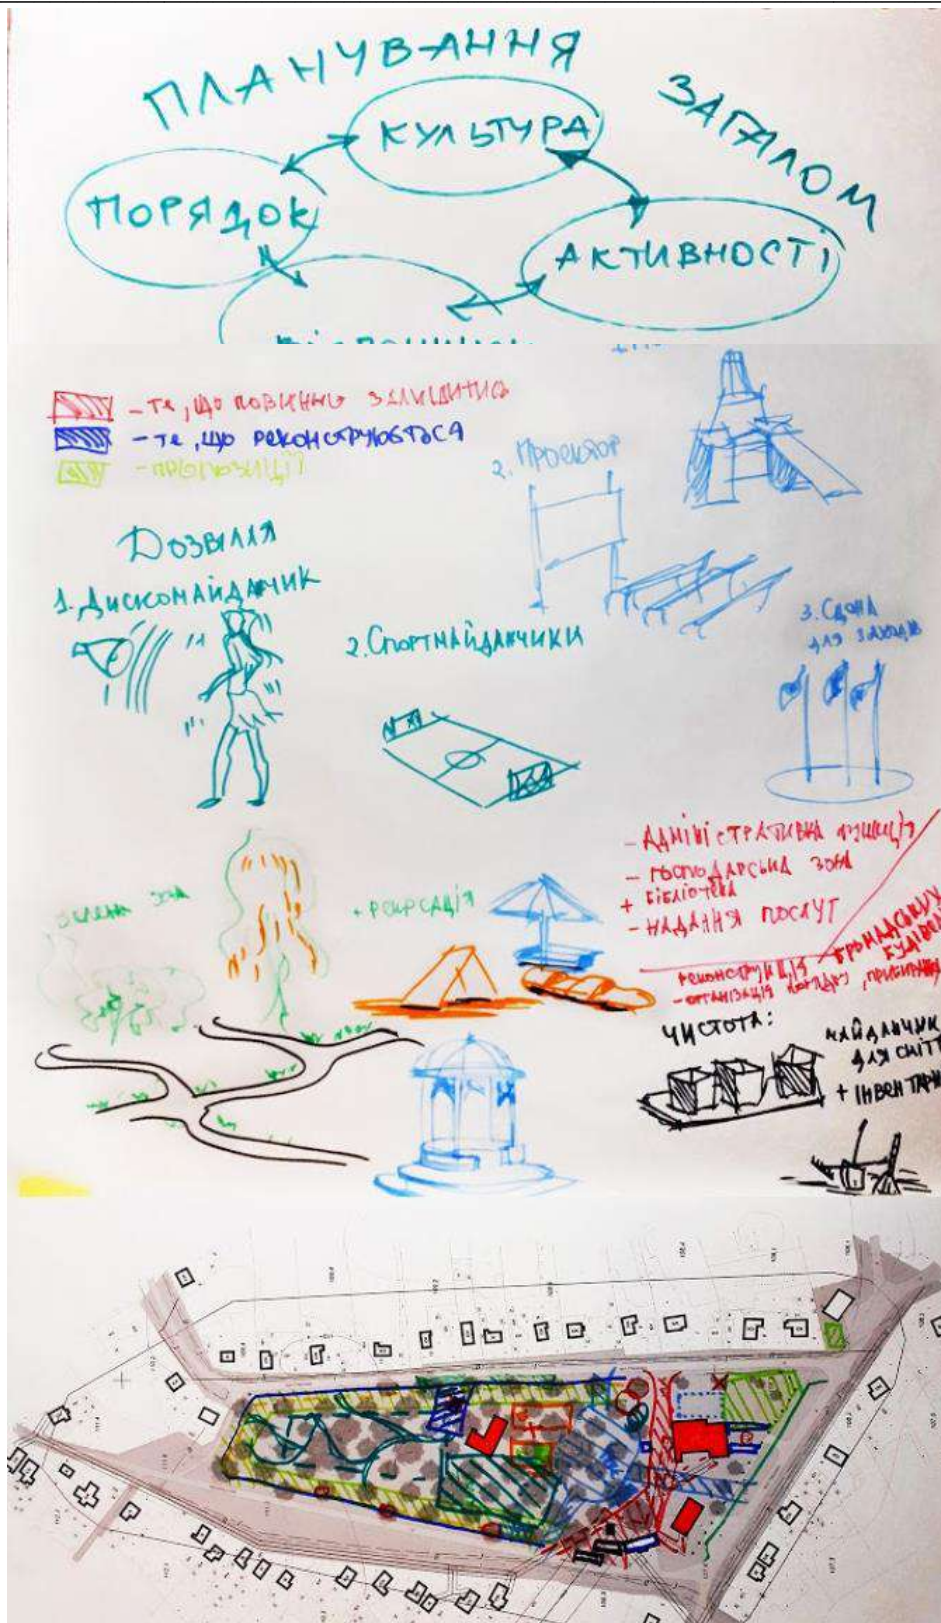 ПЛАНУВАННЯ ЗАГАЛОМ
КУЛЬТУРА
ПОРЯДОК
АКТИВНОСТІ
- ТЕ, ЩО ПОВИННО ЗАЛИШИТИСЬ
- ТЕ, ЩО РЕКОНСТРУЮЄТЬСЯ
- ПРОПОЗИЦІЇ
2. ПРОЕКТОР
ДОЗВІЛЛЯ
1. ДИСКОМАЙДАНЧИК
2. СПОРТМАЙДАНЧИКИ
3. СЦЕНА
ДЛЯ ЗАХОДІВ
ЗЕЛЕНА ЗОНА
+ РЕКРЕАЦІЯ
- АДМІНІСТРАТИВНА ФУНКЦІЯ
- ГОСПОДАРСЬКА ЗОНА
+ БІБЛІОТЕКА
- НАДАННЯ ПОСЛУГ
РЕКОНСТРУКЦІЯ
- ОРГАНІЗАЦІЯ
ЧИСТОТА:
МАЙДАНЧИК
ДЛЯ СМІТТ
+ ІНВЕНТАР